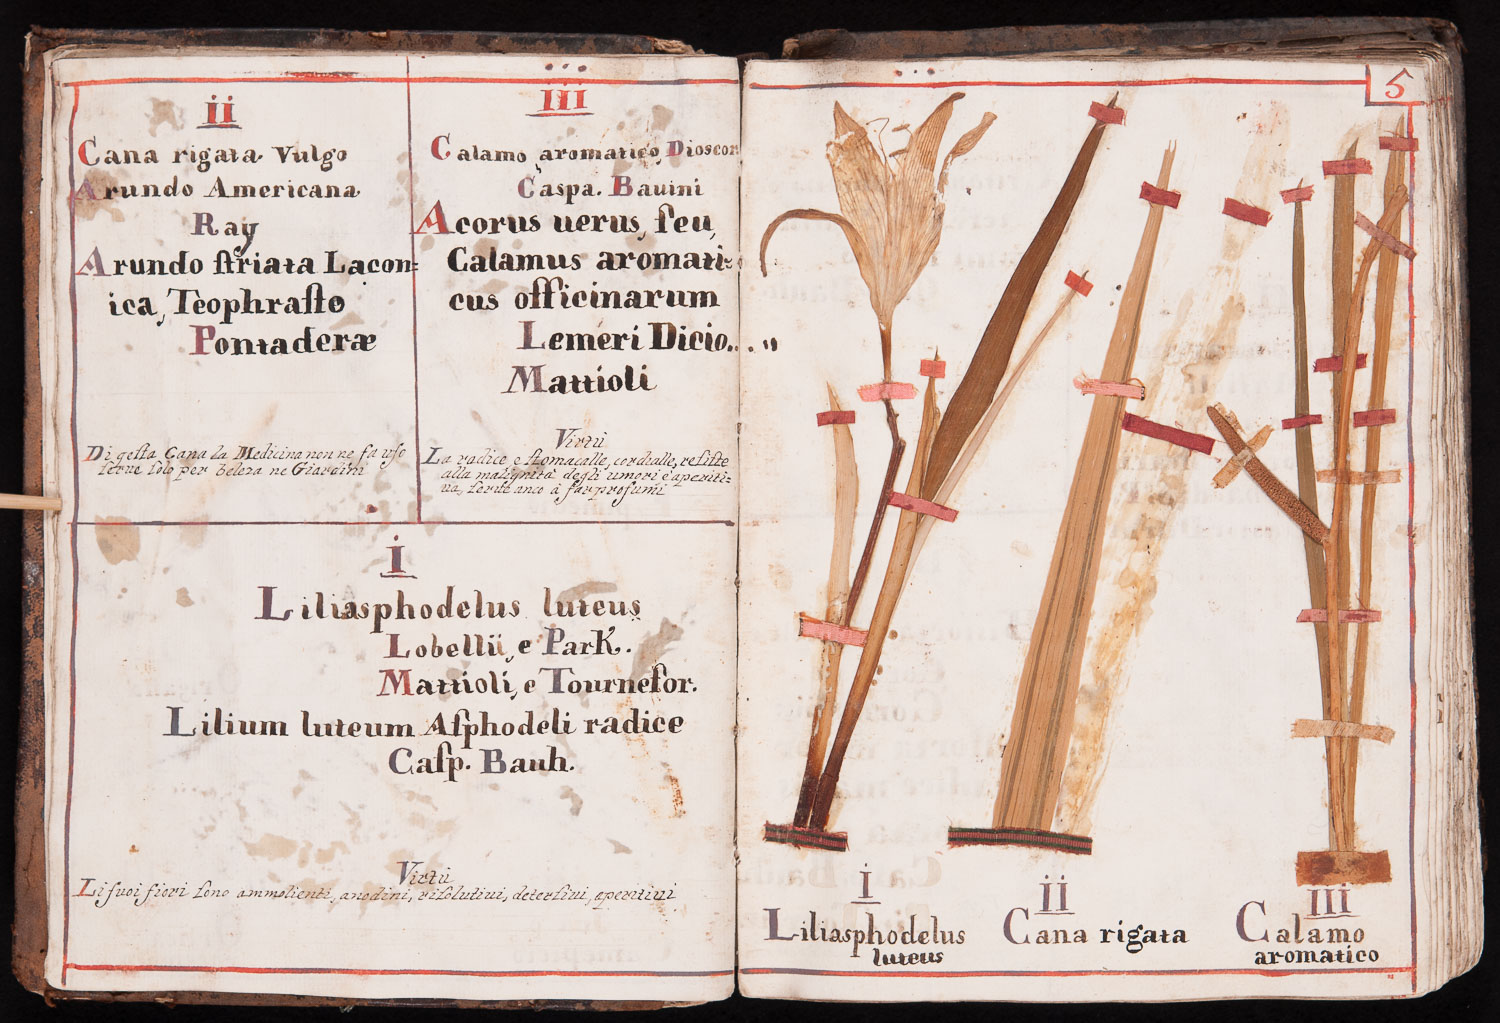 ii
Cana rigata Vulgo
Arundo Americana
Ray
Arundo striata Lacon=
ica, Teophrasto
Pontaderæ
Di qesta Cana la Medicina non ne fa uso
serve solo per beleza ne Giardini
III
Calamo aromatico Dioscor
Caspa. Bauini
Acorus uerus, seu,
Calamus aromati=
cus officinarum
Lemeri Dicio.
Mattioli
Virtù
La radice e stomacalle, cordialle, resiste
alla malignità degli umori è aperiti=
ua, serue anco à far profumi
i
Liliasphodelus luteus
Lobellii, e Park.
Mattioli, e Tournefor.
Lilium luteum Asphodeli radice
Casp. Bauh.
Virtù
Li suoi fiori sono ammolienti, anodini, risolutiui, detersiui, aperitiui
5
i
Liliasphodelus
luteus
ii
Cana rigata
III
Calamo
aromatico